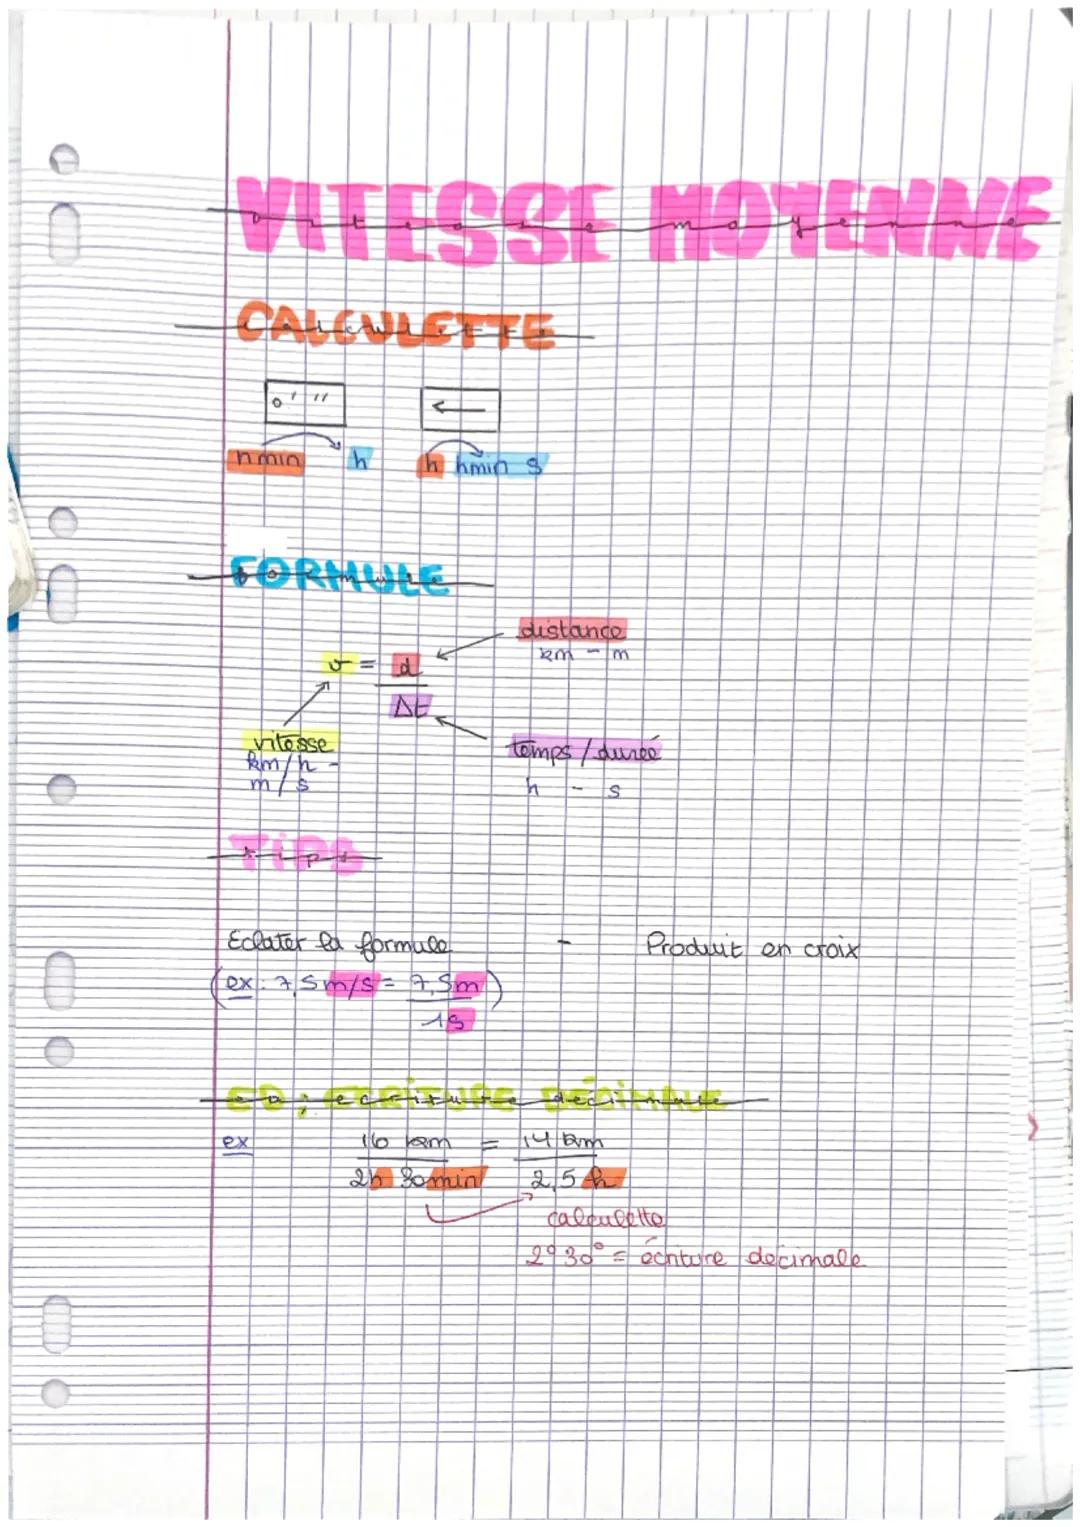 VITESSE MOYENNE
CALCULETTE
o ' "
←
h min h h hmin s
FORMULE
distance
km - m
v = d
Δt
vitesse
km/h -
m/s
temps / dureé
h - s
TIPS
Eclater la formule - Produit en croix
(ex: 7,5 m/s = 7,5m)
1s
ED : ECRITURE DÉCIMALE
ex 16 km = 14 km
2h 30min 2,5 h
calculette
2° 30° = écriture decimale